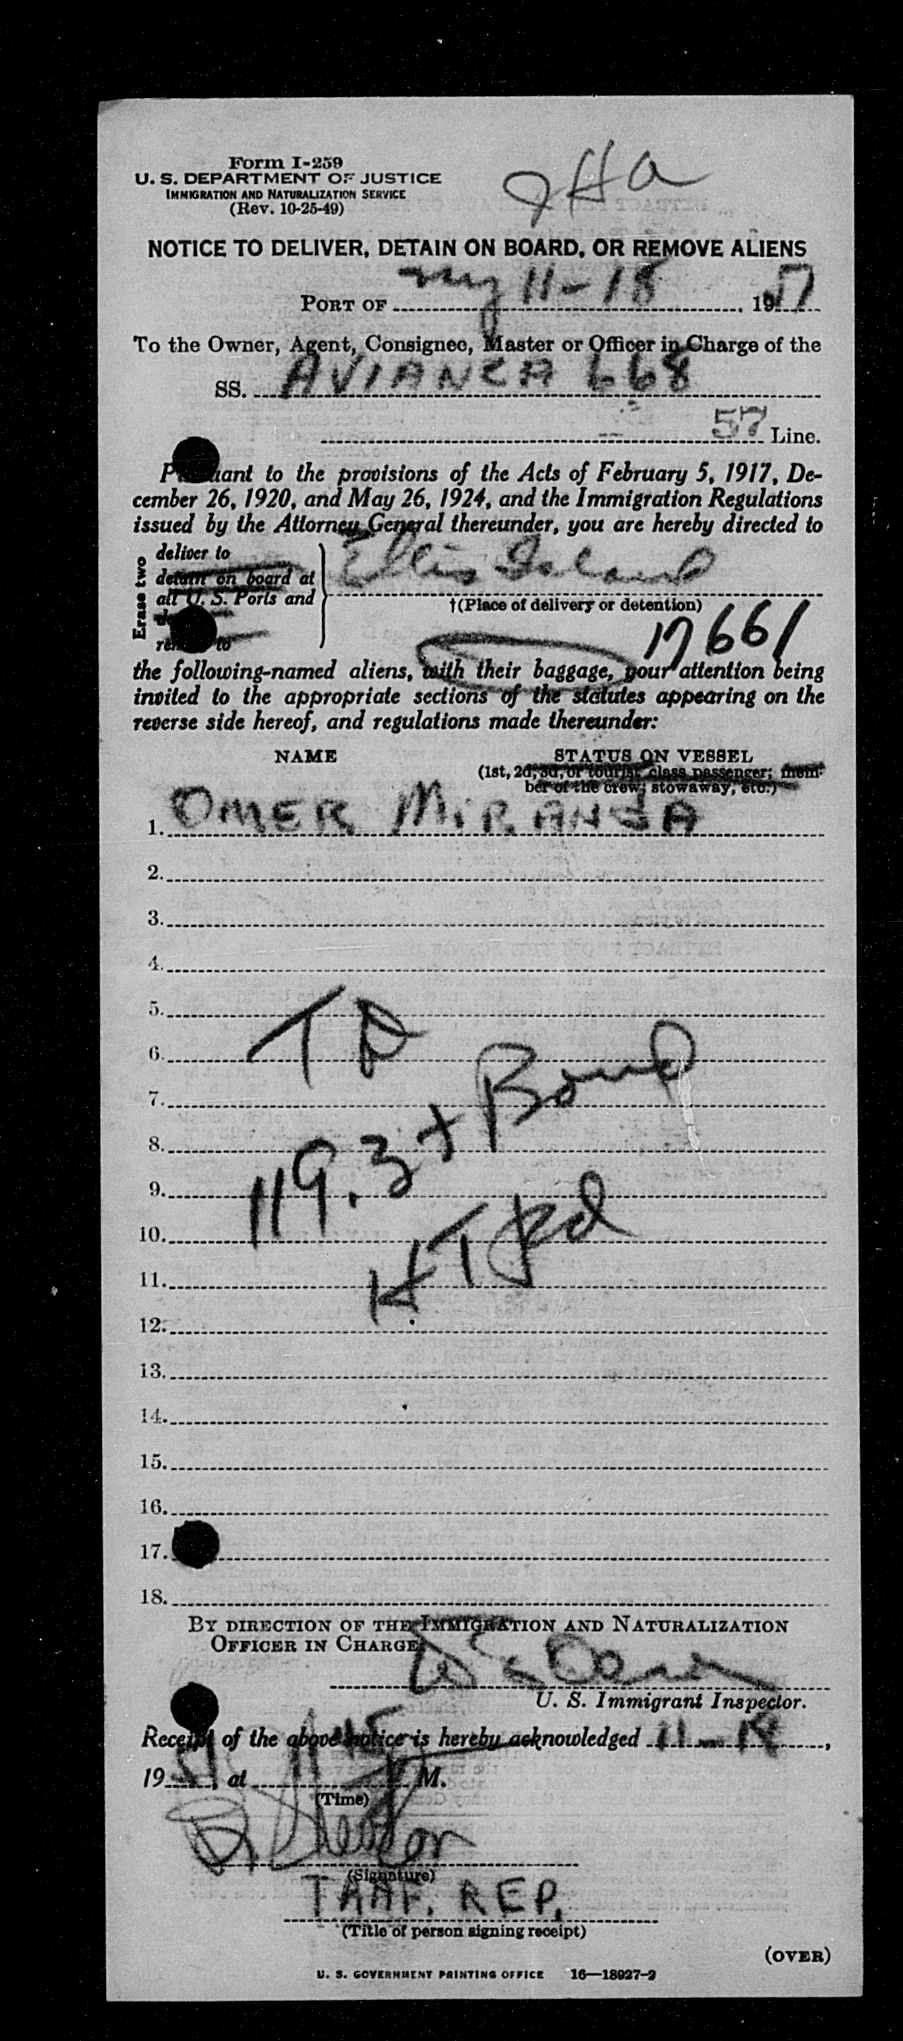 Form I-259
U. S. DEPARTMENT OF JUSTICE
IMMIGRATION AND NATURALIZATION SERVICE
(Rev. 10-25-49)
NOTICE TO DELIVER, DETAIN ON BOARD, OR REMOVE ALIENS
PORT OF 11-18, 1951
To the Owner, Agent, Consignee, Master or Officer in Charge of the
SS. AVIANCA 668
57 Line.
Pursuant to the provisions of the Acts of February 5, 1917, De-
cember 26, 1920, and May 26, 1924, and the Immigration Regulations
issued by the Attorney General thereunder, you are hereby directed to
Erase two
deliver to
detain on board at
all U. S. Ports and
Ellis Island
†(Place of delivery or detention)
17661
the following-named aliens, with their baggage, your attention being
invited to the appropriate sections of the statutes appearing on the
reverse side hereof, and regulations made thereunder:
NAME STATUS ON VESSEL
(1st, 2d, 3d, or tourist class passenger; mem-
ber of the crew; stowaway, etc.)
1. OMER MIRANDA
2.
3.
4.
5.
6.
7.
8.
9.
10.
11.
12.
13.
14.
15.
16.
17.
18.
TD
119.3 + Bond
BY DIRECTION OF THE IMMIGRATION AND NATURALIZATION
OFFICER IN CHARGE
U. S. Immigrant Inspector.
Receipt of the above notice is hereby acknowledged 11-18,
1951, at M.
(Time)
(Signature)
REP.
(Title of person signing receipt)
(OVER)
U. S. GOVERNMENT PRINTING OFFICE 16—18927-2